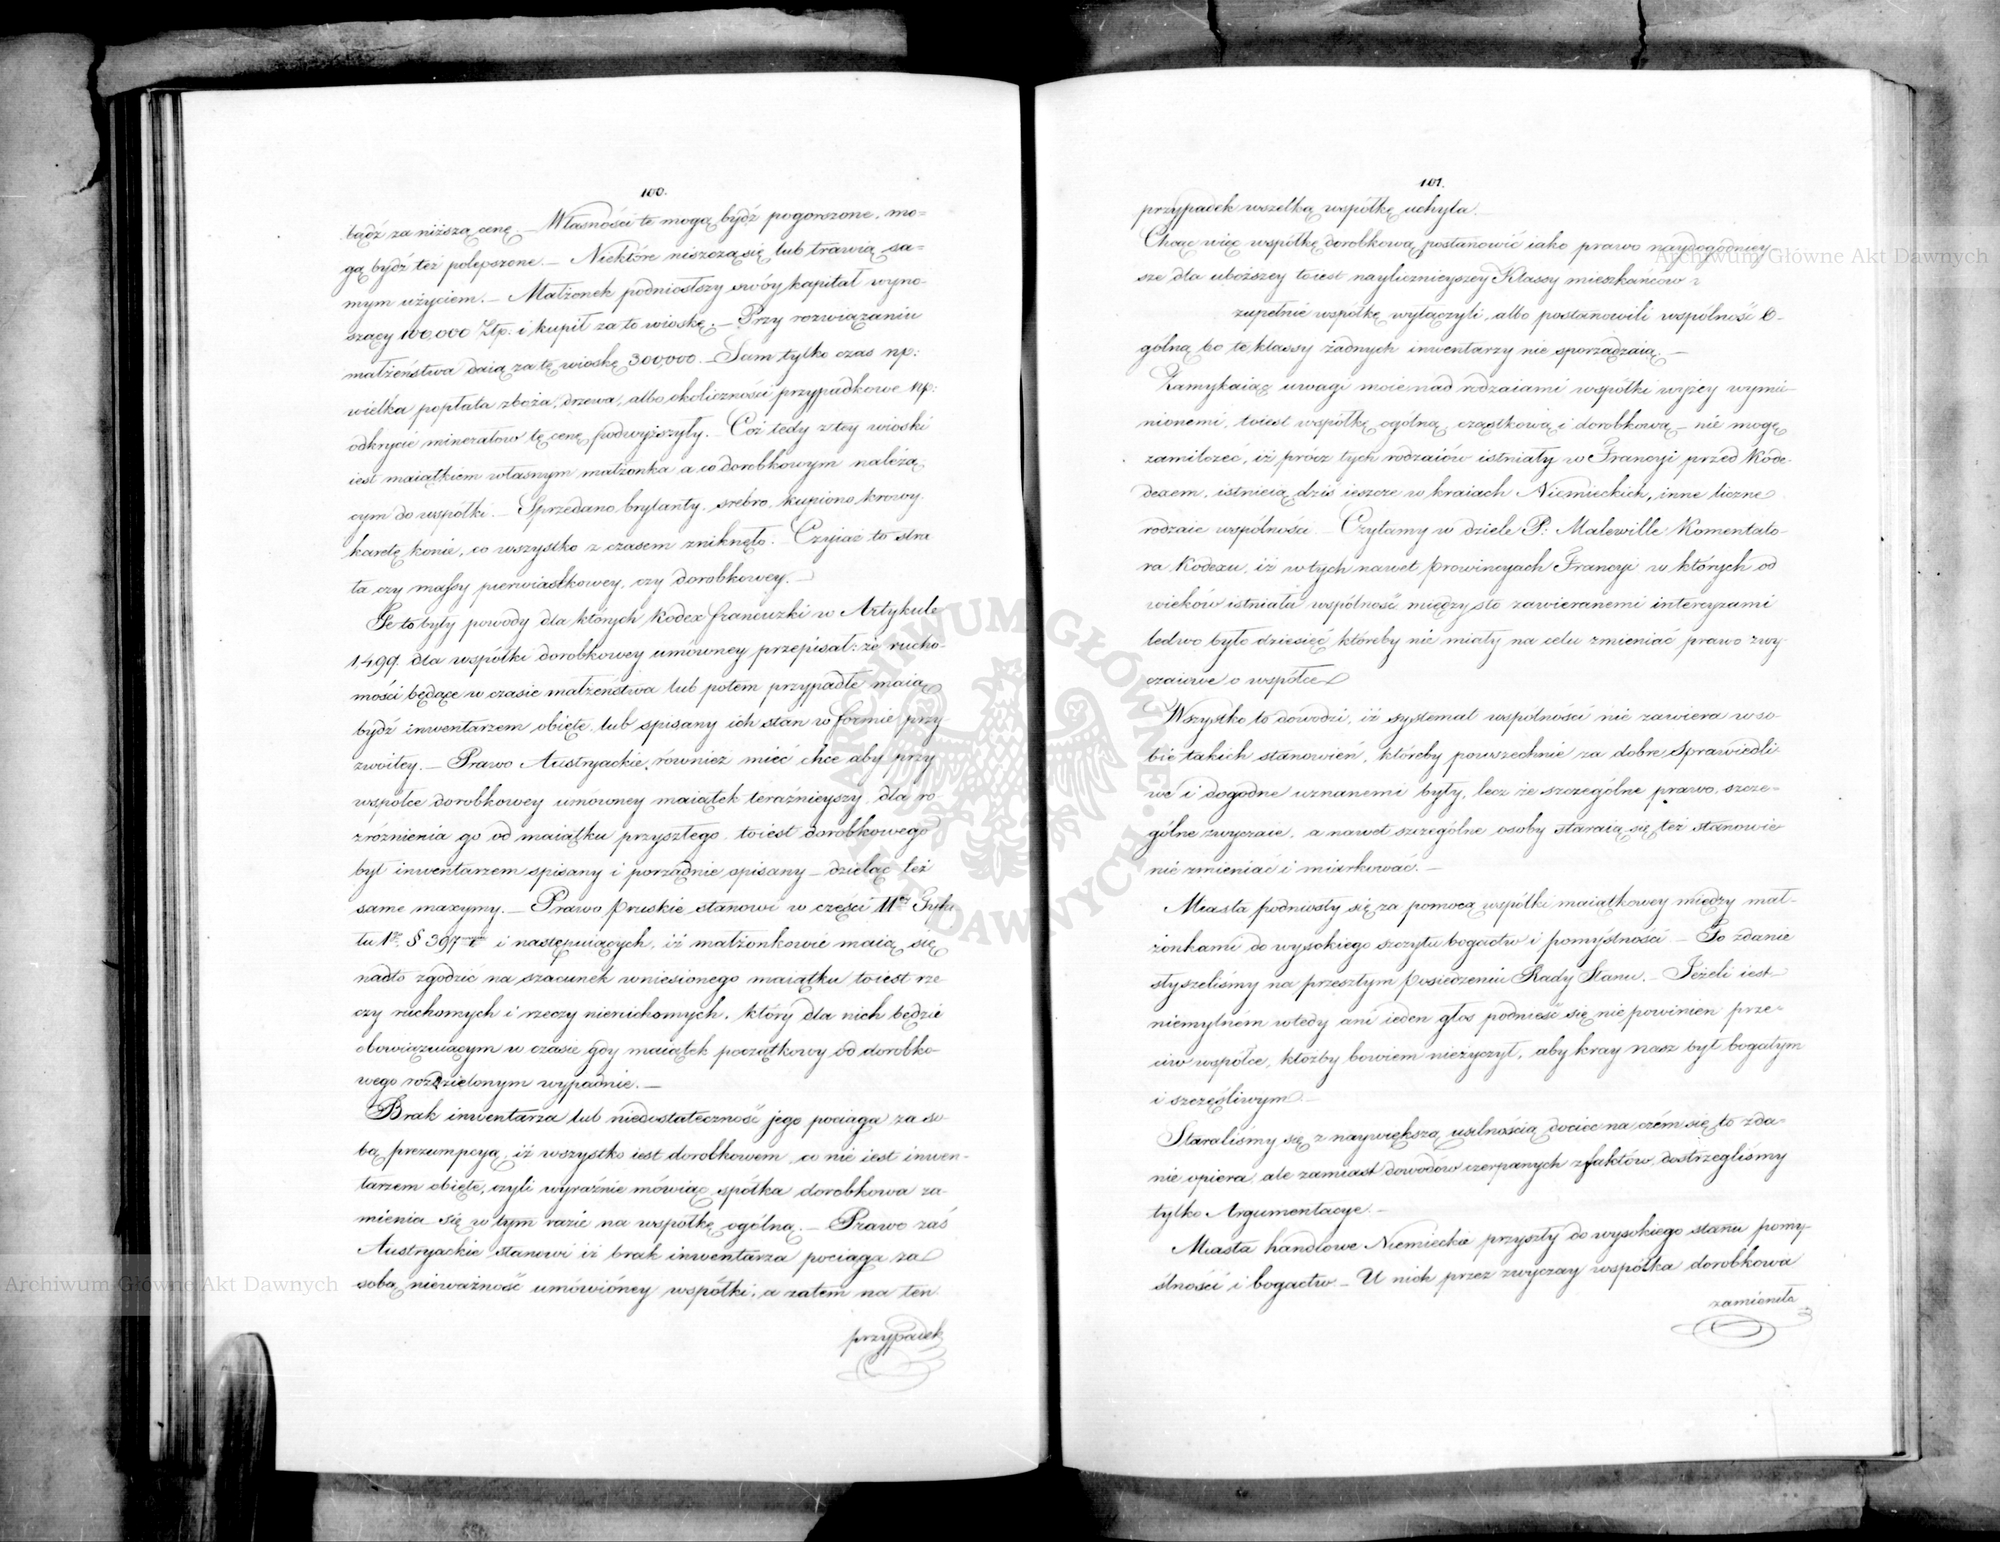 100.
bądź za niższą cenę. — Własności te mogą bydź pogorszone, mo-
gą bydź też polepszone. — Niektóre niszczą się lub trawią sa-
mym użyciem. — Małżonek podniosłszy swóy kapitał wyno-
szący 100,000 Złp: i kupił za to wioskę. — Przy rozwiązaniu
małżeństwa daią za tę wioskę 300,000. — Sam tylko czas np:
wielka popłata zboża, drzewa, albo okoliczności przypadkowe np:
odkrycie minerałow tę cenę podwyższyły. — Coż tedy z tey wioski
iest maiątkiem własnym małżonka a co dorobkowym należą-
cym do wspołki. — Sprzedano brylanty, srebro, kupiono krowy,
karetę konie, co wszystko z czasem zniknęło. — Czyiaż to stra
ta czy massy pierwiastkowey, czy dorobkowey. —
Te to były powody dla których Kodex francuzki w Artykule
1,499. dla wspołki dorobkowey umówney przepisał: że rucho-
mości będące w czasie małżeństwa lub potem przypadłe maią
bydź inwentarzem obięte, lub spisany ich stan w formie przy-
zwoitey. — Prawo Austryackie również mieć chce aby przy
wspołce dorobkowey umówney maiątek teraźnieyszy, dla ro-
zróżnienia go od maiątku przyszłego, toiest dorobkowego
był inwentarzem spisany i porządnie opisany — dzieląc też
same maxymy. — Prawo pruskie stanowi w części IIey Tytu
łu 1o, § 397 i następuiących, iż małżonkowie maią się
nadto zgodzić na szacunek wniesionego maiątku toiest rze
czy ruchomych i rzeczy nieruchomych, który dla nich będzie
obowiązuiącym w czasie gdy maiątek początkowy od dorobko-
wego rozdzielonym wypadnie. —
Brak inwentarza lub niedostateczność jego pociąga za so-
bą prezumpcyą, iż wszystko iest dorobkowem, co nie iest inwen-
tarzem obięte, czyli wyraźnie mówiąc, spółka dorobkowa za-
mienia się w tym razie na wspołkę ogólną. — Prawo zaś
Austryackie stanowi iż brak inwentarza pociąga za
sobą nieważność umówióney wspołki, a zatem na ten
przypadek
101.
przypadek wszelką wspołkę uchyla. —
Chcąc więc wspołkę dorobkową postanowić iako prawo naydogodniey
sze dla uboższey toiest naylicznieyszey Klassy mieszkańców
zupełnie wspołkę wyłączyli, albo postanowili wspólność O-
gólną bo te klassy żadnych inwentarzy nie sporządzaią. —
Zamykaiąc uwagi moie nad rodzaiami wspołki wyżey wymie-
nionemi, toiest wspołkę ogólną, cząstkową i dorobkową — nie mogę
zamilczeć, iż prócz tych rodzaiów istniały w Francyi przed Kode-
dexem, istnieią dziś ieszcze w kraiach Niemieckich, inne liczne
rodzaie wspólności. — Czytamy w dziele P: Malewille Komentato-
ra Kodexu, iż w tych nawet prowincyach Francyi w których od
wieków istniała wspólność między sto zawieranemi intercyzami
ledwo było dziesięć któreby nie miały na celu zmieniać prawo zwy-
czaiowe o wspołce.
Wszystko to dowodzi, iż systemat wspólności nie zawiera w so-
bie takich stanowień, któreby powszechnie za dobre sprawiedli-
we i dogodne uznanemi były, lecz że szczególne prawo, szcze-
gólne zwyczaie, a nawet szczególne osoby staraią się też stanowie
nie zmieniać i miarkować. —
Miasta podniosły się za pomocą wspołki maiątkowey między mał-
żonkami do wysokiego szczytu bogactw i pomyślności — To zdanie
słyszeliśmy na przeszłym posiedzeniu Rady Stanu. — Jeżeli iest
niemylném wtedy ani ieden głos podnieść się nie powinien prze-
ciw wspołce, któżby bowiem nieżyczył, aby kray nasz był bogatym
i szczęśliwym. —
Staraliśmy się z naywiększą usilnością dociec na czém się to zda-
nie opiera, ale zamiast dowodów czerpanych z faktów, dostrzegliśmy
tylko Argumentacye. —
Miasta handlowe Niemieckie przyszły do wysokiego stanu pomy-
ślności i bogactw. — U nich przez zwyczay wspołka dorobkowa
zamieniła